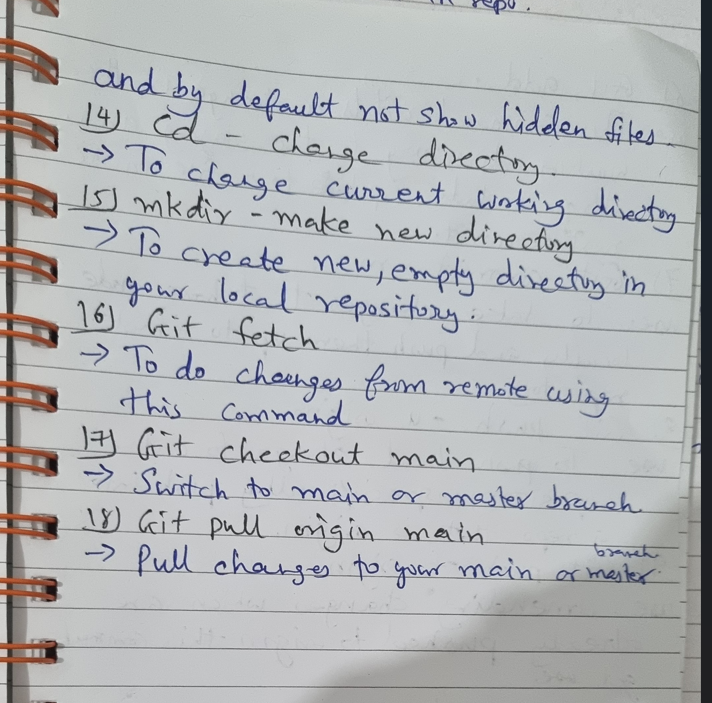 in repo.
and by default not show hidden files.
14) cd - change directory.
→ To change current working directory
15) mkdir - make new directory
→ To create new, empty directory in
your local repository.
16) Git fetch
→ To do changes from remote using
this command
17) Git checkout main
→ Switch to main or master branch
18) Git pull origin main
branch
→ Pull changes to your main or master.